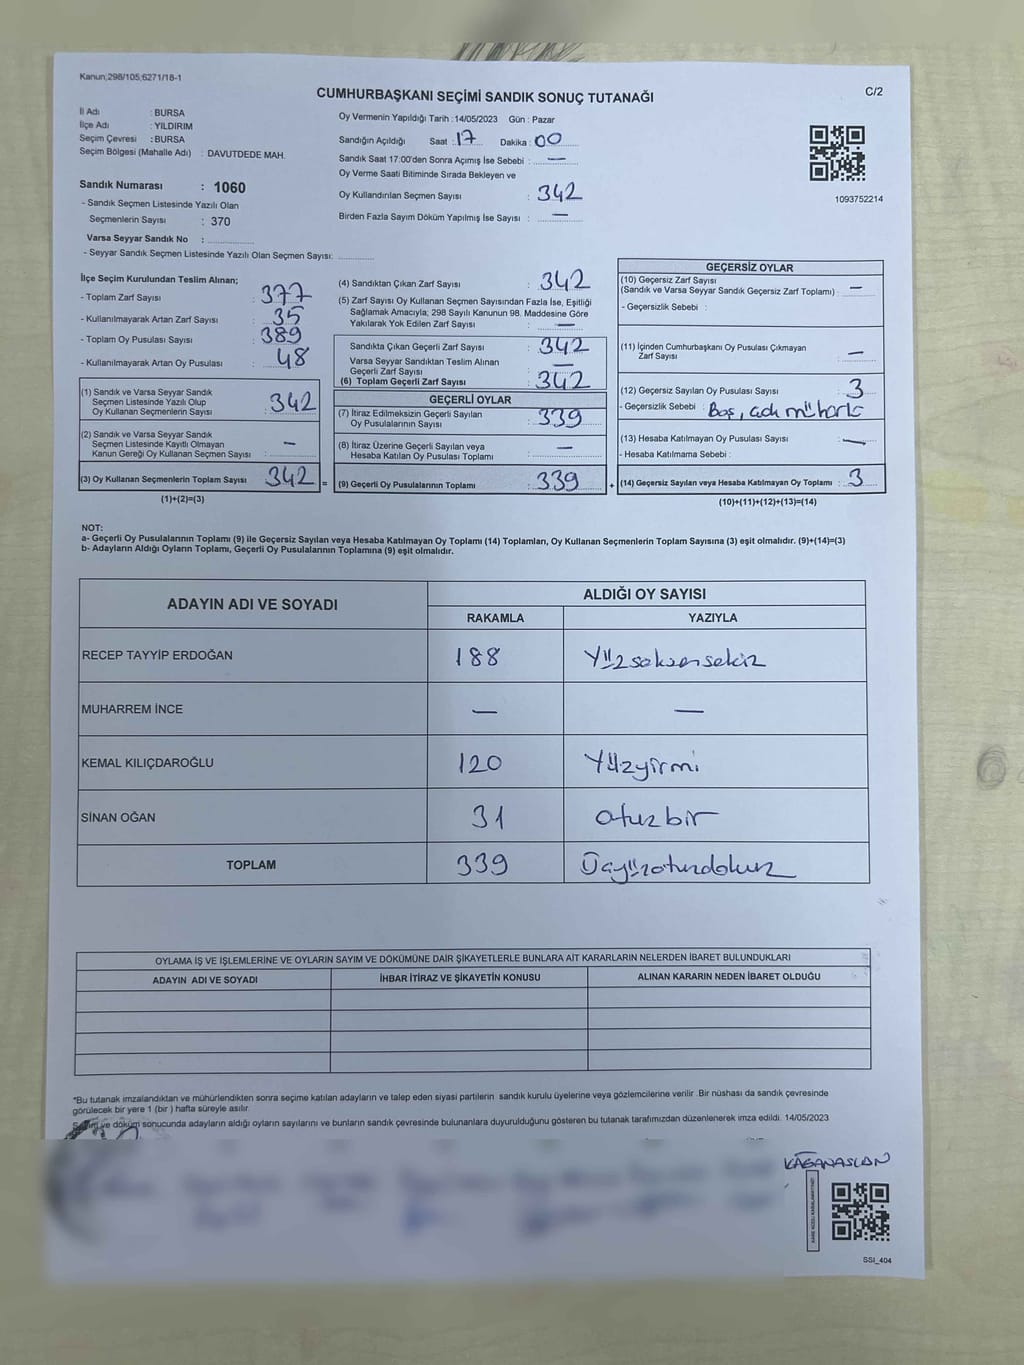 Kanun;298/105;6271/18-1
CUMHURBAŞKANI SEÇİMİ SANDIK SONUÇ TUTANAĞI
C/2
İl Adı : BURSA
İlçe Adı : YILDIRIM
Seçim Çevresi : BURSA
Seçim Bölgesi (Mahalle Adı) : DAVUTDEDE MAH.
Sandık Numarası : 1060
- Sandık Seçmen Listesinde Yazılı Olan
Seçmenlerin Sayısı : 370
Varsa Seyyar Sandık No :
- Seyyar Sandık Seçmen Listesinde Yazılı Olan Seçmen Sayısı:
Oy Vermenin Yapıldığı Tarih : 14/05/2023 Gün : Pazar
Sandığın Açıldığı Saat : 17 Dakika : 00
Sandık Saat 17:00'den Sonra Açımış İse Sebebi : —
Oy Verme Saati Bitiminde Sırada Bekleyen ve
Oy Kullandırılan Seçmen Sayısı : 342
Birden Fazla Sayım Döküm Yapılmış İse Sayısı : —
1093752214
İlçe Seçim Kurulundan Teslim Alınan;
- Toplam Zarf Sayısı : 377
- Kullanılmayarak Artan Zarf Sayısı : 35
- Toplam Oy Pusulası Sayısı : 389
- Kullanılmayarak Artan Oy Pusulası : 48
(1) Sandık ve Varsa Seyyar Sandık
Seçmen Listesinde Yazılı Olup
Oy Kullanan Seçmenlerin Sayısı : 342
(2) Sandık ve Varsa Seyyar Sandık
Seçmen Listesinde Kayıtlı Olmayan
Kanun Gereği Oy Kullanan Seçmen Sayısı : —
(3) Oy Kullanan Seçmenlerin Toplam Sayısı : 342 =
(1)+(2)=(3)
(4) Sandıktan Çıkan Zarf Sayısı : 342
(5) Zarf Sayısı Oy Kullanan Seçmen Sayısından Fazla İse, Eşitliği
Sağlamak Amacıyla; 298 Sayılı Kanunun 98. Maddesine Göre
Yakılarak Yok Edilen Zarf Sayısı : —
Sandıkta Çıkan Geçerli Zarf Sayısı : 342
Varsa Seyyar Sandıktan Teslim Alınan
Geçerli Zarf Sayısı : —
(6) Toplam Geçerli Zarf Sayısı : 342
GEÇERLİ OYLAR
(7) İtiraz Edilmeksizin Geçerli Sayılan
Oy Pusulalarının Sayısı : 339
(8) İtiraz Üzerine Geçerli Sayılan veya
Hesaba Katılan Oy Pusulası Toplamı : —
(9) Geçerli Oy Pusulalarının Toplamı : 339 +
GEÇERSİZ OYLAR
(10) Geçersiz Zarf Sayısı
(Sandık ve Varsa Seyyar Sandık Geçersiz Zarf Toplamı) : —
- Geçersizlik Sebebi :
(11) İçinden Cumhurbaşkanı Oy Pusulası Çıkmayan
Zarf Sayısı : —
(12) Geçersiz Sayılan Oy Pusulası Sayısı : 3
- Geçersizlik Sebebi : Boş,
(13) Hesaba Katılmayan Oy Pusulası Sayısı : —
- Hesaba Katılmama Sebebi :
(14) Geçersiz Sayılan veya Hesaba Katılmayan Oy Toplamı : 3
(10)+(11)+(12)+(13)=(14)
NOT:
a- Geçerli Oy Pusulalarının Toplamı (9) ile Geçersiz Sayılan veya Hesaba Katılmayan Oy Toplamı (14) Toplamları, Oy Kullanan Seçmenlerin Toplam Sayısına (3) eşit olmalıdır. (9)+(14)=(3)
b- Adayların Aldığı Oyların Toplamı, Geçerli Oy Pusulalarının Toplamına (9) eşit olmalıdır.
ADAYIN ADI VE SOYADI
ALDIĞI OY SAYISI
RAKAMLA YAZIYLA
RECEP TAYYİP ERDOĞAN 188 Yüzseksensekiz
MUHARREM İNCE — —
KEMAL KILIÇDAROĞLU 120 Yüzyirmi
SİNAN OĞAN 31 otuzbir
TOPLAM 339 Üçyüzotuzdokuz
OYLAMA İŞ VE İŞLEMLERİNE VE OYLARIN SAYIM VE DÖKÜMÜNE DAİR ŞİKAYETLERLE BUNLARA AİT KARARLARIN NELERDEN İBARET BULUNDUKLARI
ADAYIN ADI VE SOYADI İHBAR İTİRAZ VE ŞİKAYETİN KONUSU ALINAN KARARIN NEDEN İBARET OLDUĞU
*Bu tutanak imzalandıktan ve mühürlendikten sonra seçime katılan adayların ve talep eden siyasi partilerin sandık kurulu üyelerine veya gözlemcilerine verilir. Bir nüshası da sandık çevresinde
görülecek bir yere 1 (bir ) hafta süreyle asılır.
Sayım ve döküm sonucunda adayların aldığı oyların sayılarını ve bunların sandık çevresinde bulunanlara duyurulduğunu gösteren bu tutanak tarafımızdan düzenlenerek imza edildi. 14/05/2023
KAĞAN ASLAN
SSI_404